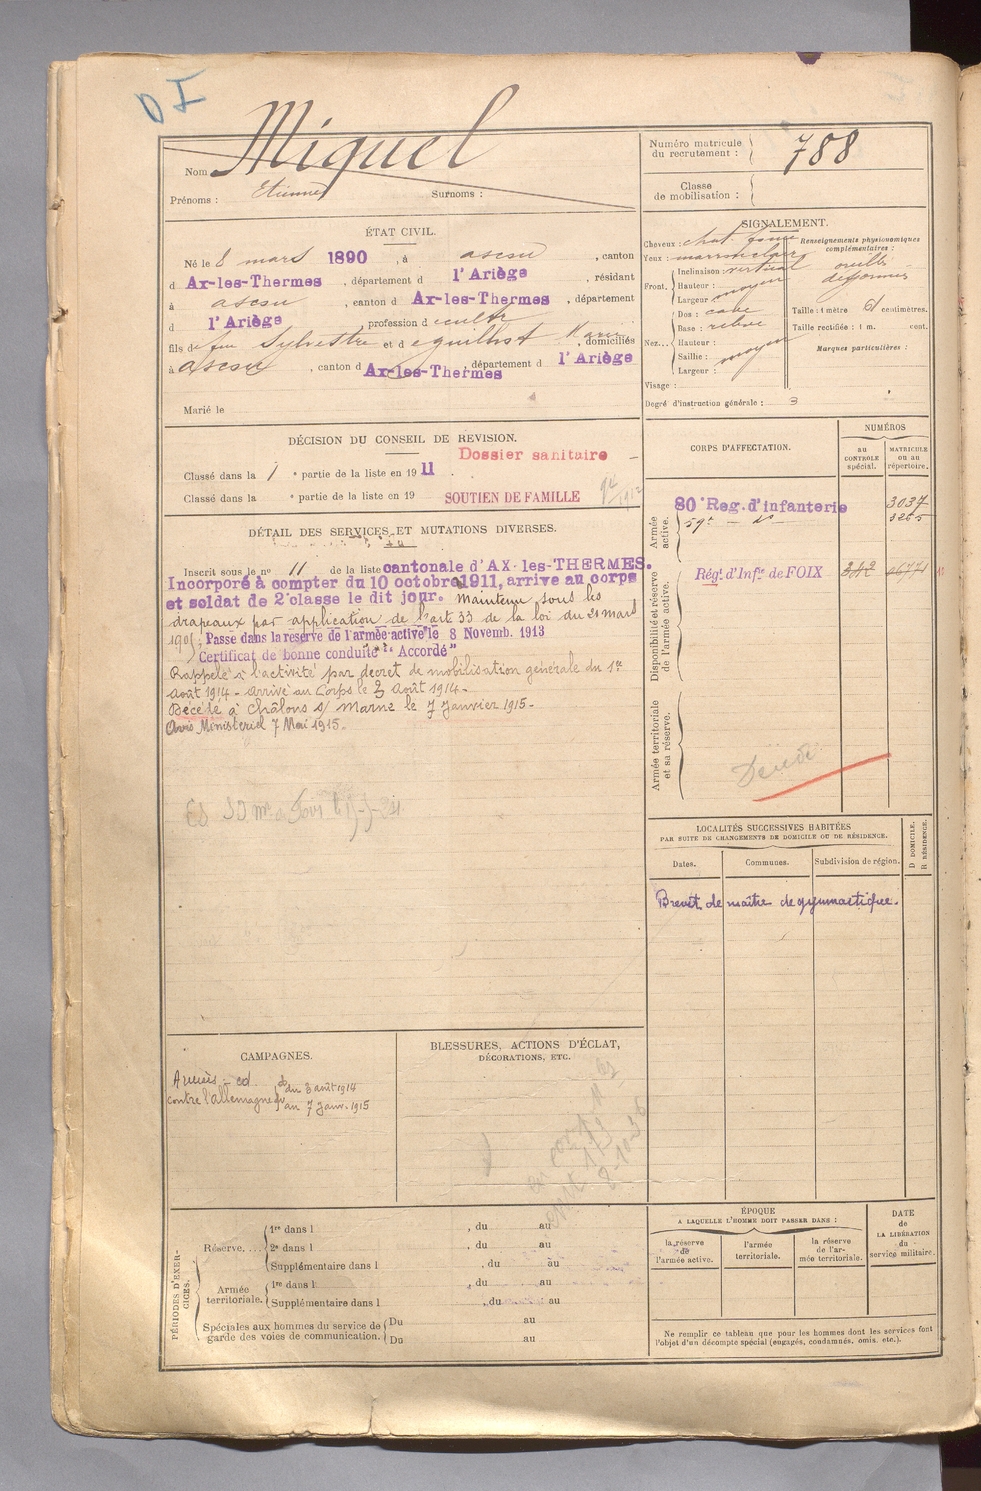 D I
Nom Miquel
Prénoms : Etienne Surnoms :
Numéro matricule
du recrutement : 788
Classe
de mobilisation :
ÉTAT CIVIL.
Né le 8 mars 1890, à ascou, canton
d Ax-les-Thermes, département d l'Ariège, résidant
à ascou, canton d Ax-les-Thermes, département
d l'Ariège, profession de cultr
fils de feu Sylvestre et d eguilhot Marie, domiciliés
à ascou, canton d Ax-les-Thermes, département d l'Ariège
Marié le
SIGNALEMENT.
Cheveux : chat. foncé
Yeux : marron clair
Front. Inclinaison : vertical
Hauteur :
Largeur : moyen
Nez... Dos : cave
Base : relevé
Hauteur :
Saillie : moyen
Largeur :
Visage :
Degré d'instruction générale : 3
Renseignements physionomiques
complémentaires :
oreilles
Taille : 1 mètre 61 centimètres.
Taille rectifiée : 1 m. cent.
Marques particulières :
DÉCISION DU CONSEIL DE REVISION.
Dossier sanitaire
Classé dans la 1 e partie de la liste en 1911.
Classé dans la e partie de la liste en 19 SOUTIEN DE FAMILLE
DÉTAIL DES SERVICES ET MUTATIONS DIVERSES.
Inscrit sous le no 11 de la liste cantonale d'AX-les-THERMES.
Incorporé à compter du 10 octobre 1911, arrive au corps
et soldat de 2e classe le dit jour. Maintenu sous les
drapeaux par application de l'art 33 de la loi du 21 mars
1905. Passé dans la réserve de l'armée active le 8 Novemb. 1913
Certificat de bonne conduite "Accordé"
Rappelé à l'activité par decret de mobilisation générale du 1er
Août 1914 - arrivé au Corps le 3 Août 1914 -
Décédé à Châlons s/ Marne le 7 Janvier 1915 -
Avis Ministeriel 7 Mai 1915 -
CORPS D'AFFECTATION.
NUMÉROS
au
CONTRÔLE
spécial.
MATRICULE
ou au
répertoire.
Armée
active.
80e Reg. d'infanterie 3037
59e - do - 3265
Disponibilité et réserve
de l'armée active.
Rég. d'Infie de FOIX
Armée territoriale
et sa réserve.
LOCALITÉS SUCCESSIVES HABITÉES
PAR SUITE DE CHANGEMENTS DE DOMICILE OU DE RÉSIDENCE.
Dates. Communes. Subdivision de région.
D DOMICILE.
R RÉSIDENCE.
Brevet de maître de gymnastique.
CAMPAGNES.
contre l'allemagne du 3 août 1914
au 7 Janv. 1915
BLESSURES, ACTIONS D'ÉCLAT,
DÉCORATIONS, ETC.
PÉRIODES D'EXER-
CICES.
Réserve.... 1re dans l , du au
2e dans l , du au
Supplémentaire dans l , du au
Armée
territoriale. 1re dans l , du au
Supplémentaire dans l , du au
Spéciales aux hommes du service de
garde des voies de communication. Du au
Du au
ÉPOQUE
A LAQUELLE L'HOMME DOIT PASSER DANS :
la réserve
de
l'armée active.
l'armée
territoriale.
la réserve
de l'ar-
mée territoriale.
DATE
de
LA LIBÉRATION
du
service militaire.
Ne remplir ce tableau que pour les hommes dont les services font
l'objet d'un décompte spécial (engagés, condamnés, omis, etc.).